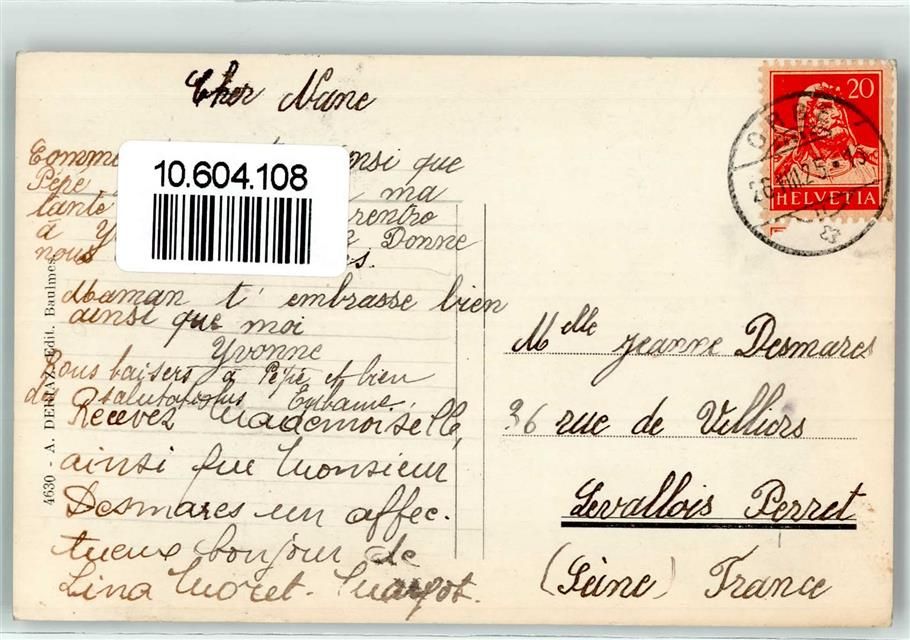 Cher Nane
Comme ainsi que
Pépé ma
tante rentre
à Donne
nous
Maman t'embrasse bien
ainsi que moi
Yvonne
Bons baisers à Pépé et bien
des
Recevez Mademoiselle,
ainsi que Monsieur
Desmares un affec-
tueux bonjour de
Lina Moret-
10.604.108
4630 - A. DERIAZ, Edit. Baulmes
20
HELVETIA
26.VIII.25-13
Melle Jeanne Desmares
36 rue de Villiers
Levallois Perret
(Seine) France